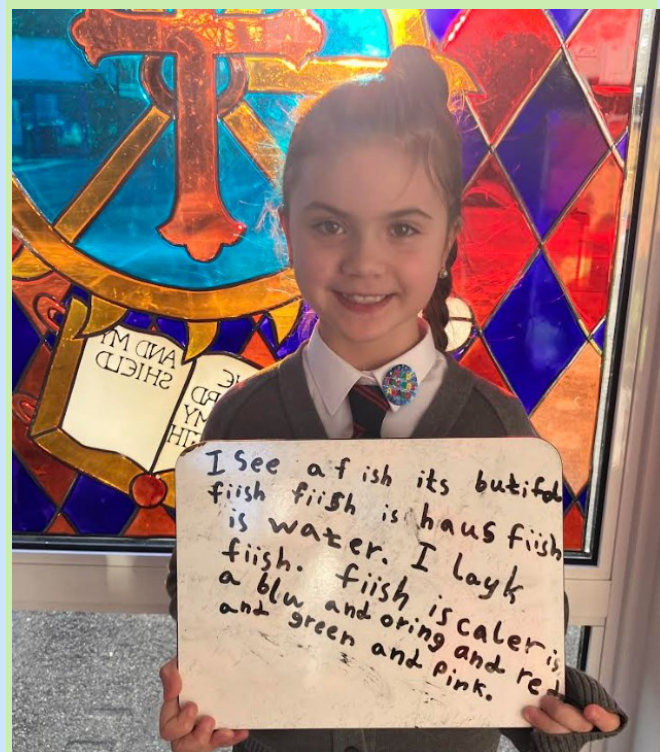 AND MY
SHIELD
I see a fish its butifol
fiish fiish is haus fiish
is water. I layk
fiish. fiish is caler is
a blu and oring and red
and green and pink.